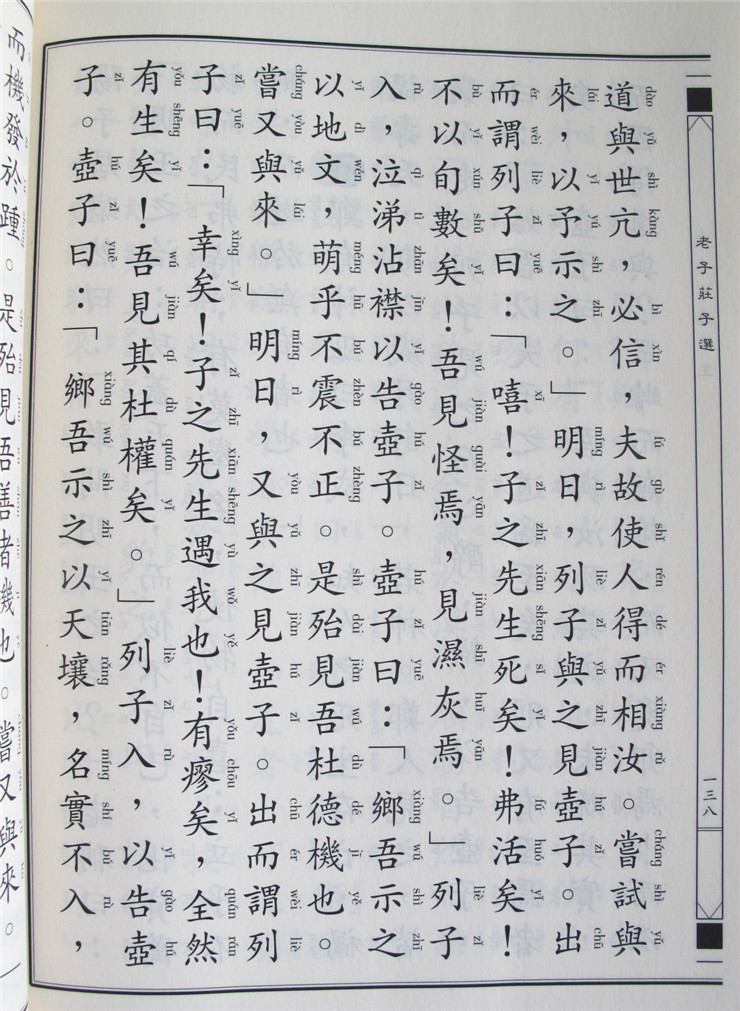 老子莊子選
一三八
道與世亢，必信，夫故使人得而相汝。嘗試與
來，以予示之。」明日，列子與之見壺子。出
而謂列子曰：「嘻！子之先生死矣！弗活矣！
不以旬數矣！吾見怪焉，見濕灰焉。」列子
入，泣涕沾襟以告壺子。壺子曰：「鄉吾示之
以地文，萌乎不震不正。是殆見吾杜德機也。
嘗又與來。」明日，又與之見壺子。出而謂列
子曰：「幸矣！子之先生遇我也！有瘳矣，全然
有生矣！吾見其杜權矣。」列子入，以告壺
子。壺子曰：「鄉吾示之以天壤，名實不入，
而機發於踵。是殆見吾善者機也。嘗又與來。